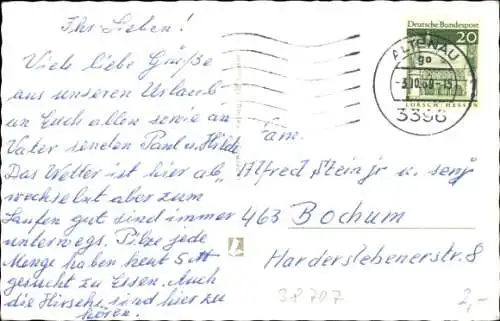 Ihr Lieben!
Viele liebe Grüße
aus unseren Urlaub
an Euch allen sowie an
Vater senden Paul u. Hilde
Das Wetter ist hier ab
wechselnt aber zum
Laufen gut sind immer
unterwegs. Pilze jede
Menge haben heut Sott
gesucht zu Essen. Auch
die Hirsche sind hier zu
hören.
Deutsche Bundespost
20
LORSCH / HESSEN
ALTENAU
3396
Fam.
Alfred Stein jr u. senj
463 Bochum
Harderslebenerstr. 8
38707
2,-